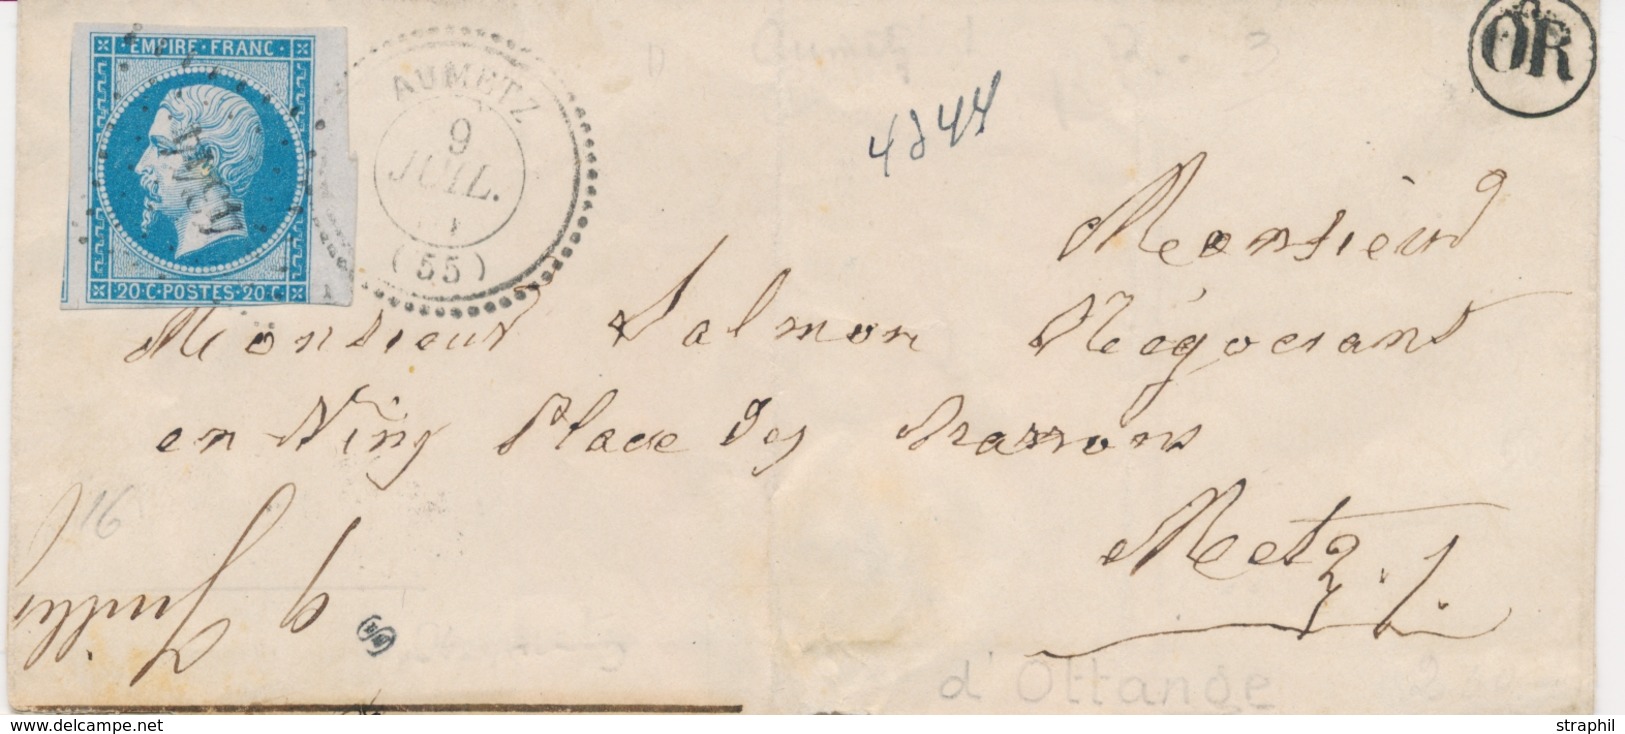 EMPIRE·FRANC
20·C·POSTES·20·C
AUMETZ
9
JUIL.
(55)
OR
4344
Monsieur
Monsieur Salmon Négociant
en Vins Place des Marrons
Metz.
16
9 Juillet
d'Ottange
straphil